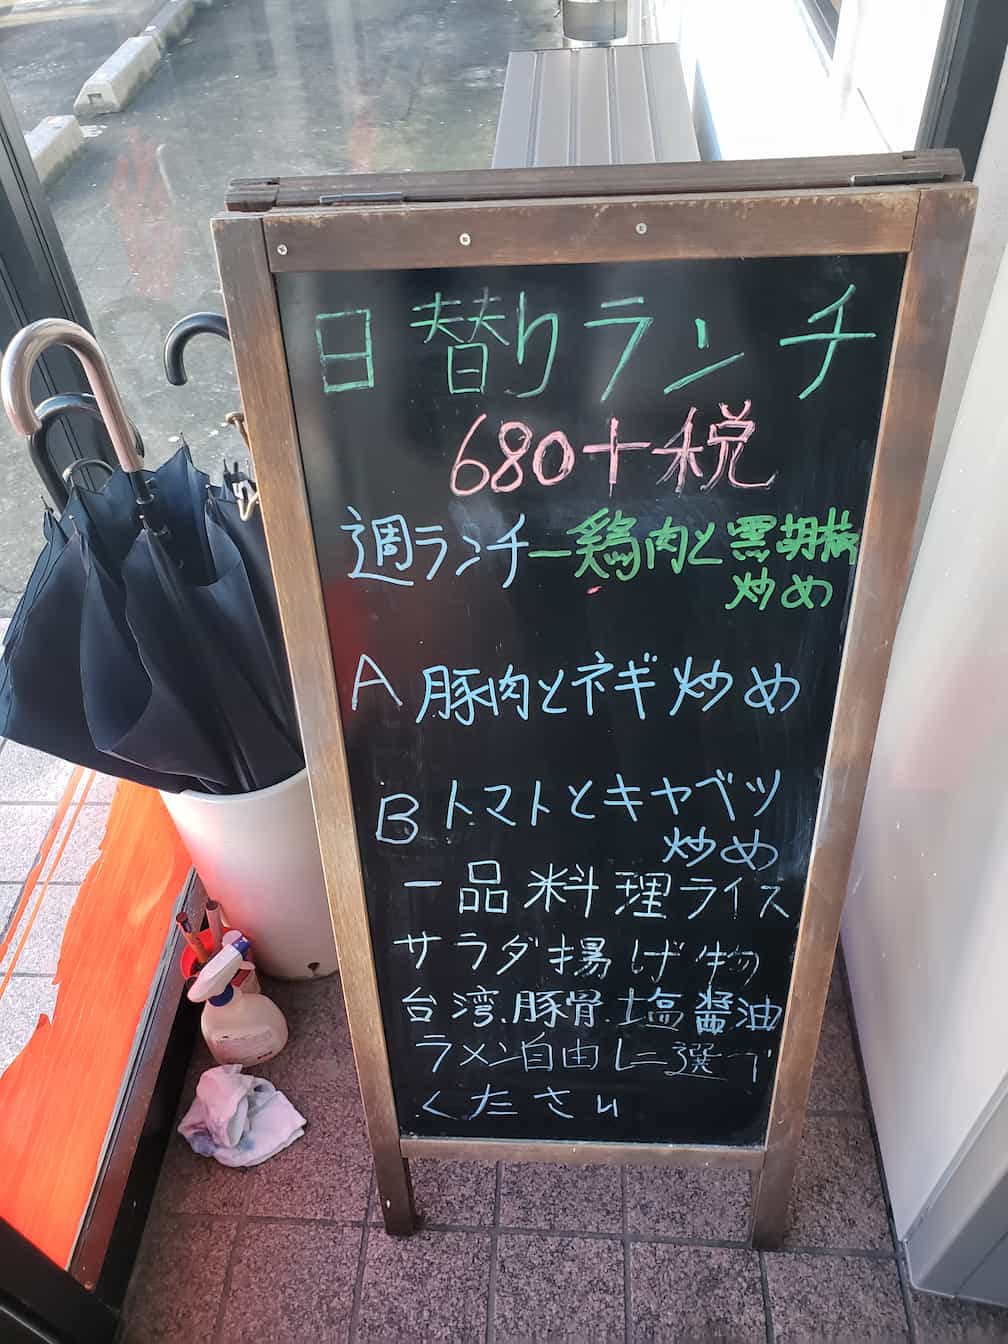 日替りランチ
680+税
週ランチー鶏肉と黒胡椒
炒め
A 豚肉とネギ炒め
B トマトとキャベツ
炒め
一品料理ライス
サラダ揚げ物
台湾.豚骨.塩醤油
ラメン自由に選べ
ください